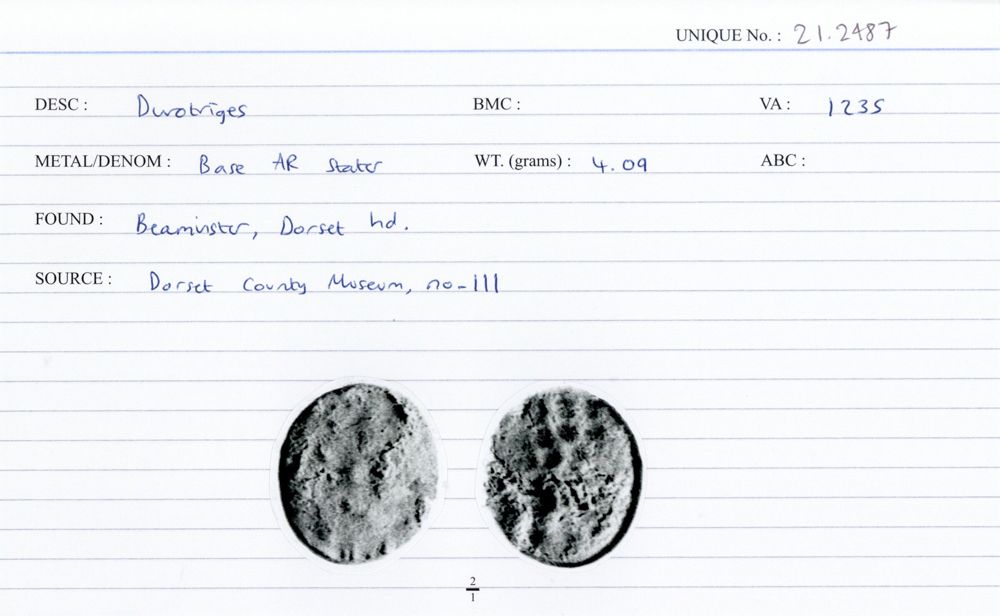 UNIQUE No. : 21.2487
DESC : Durotriges BMC : VA : 1235
METAL/DENOM : Base AR Stater WT. (grams) : 4.09 ABC :
FOUND : Beaminster, Dorset hd.
SOURCE : Dorset County Museum, no-111
2
1